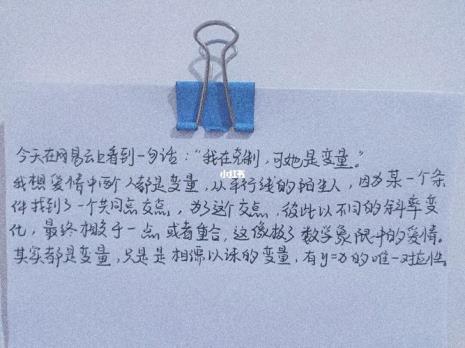 今天在网易云上看到一句话："我在克制,可她是变量。"
我想爱情中两个人都是变量,从平行线的陌生人,因为某一个条
件找到了一个共同点交点,为了这个交点,彼此以不同的斜率变
化,最终相交于一点或者重合,这像极了数学象限中的爱情。
其实都是变量,只是是相濡以沫的变量,有y=x的唯一对应性。
小红书